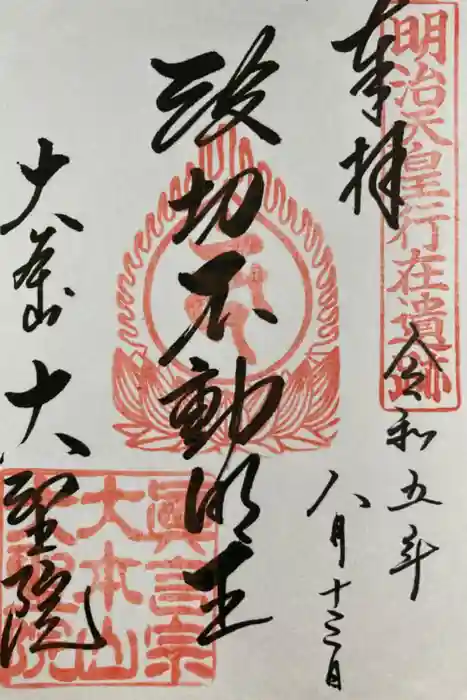 明治天皇行在遺跡
奉拝
令和五年
八月十三日
波切不動明王
大本山 大聖院
眞言宗
大本山
大聖院